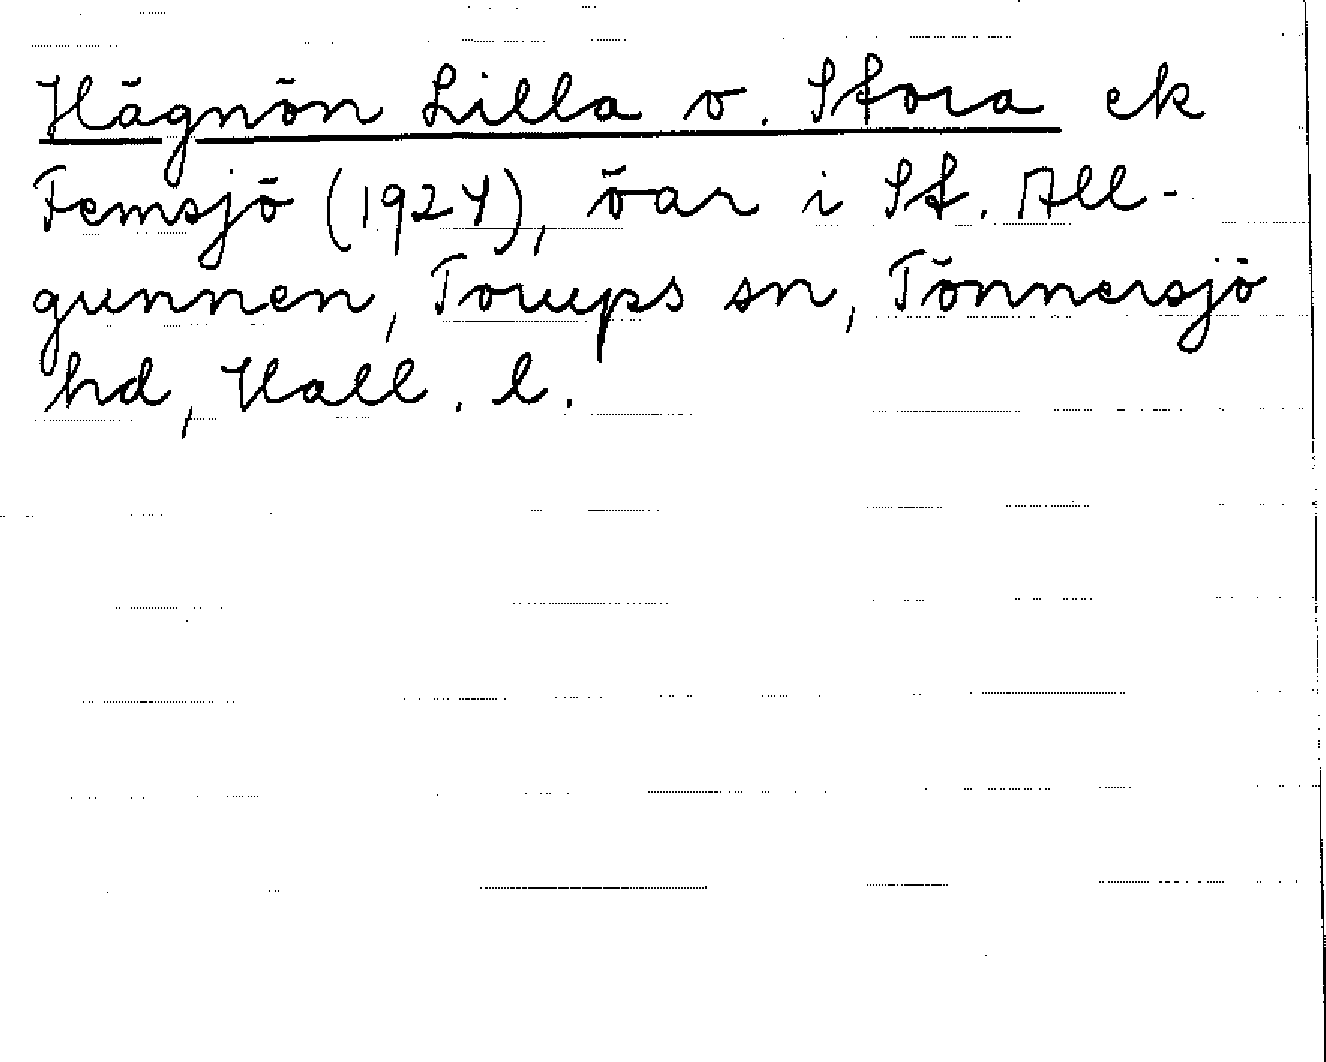 Hägnön Lilla o. Stora ek
Femsjö (1924), öar i St. All-
gunnen, Torups sn, Tönnersjö
hd, Hall. l.